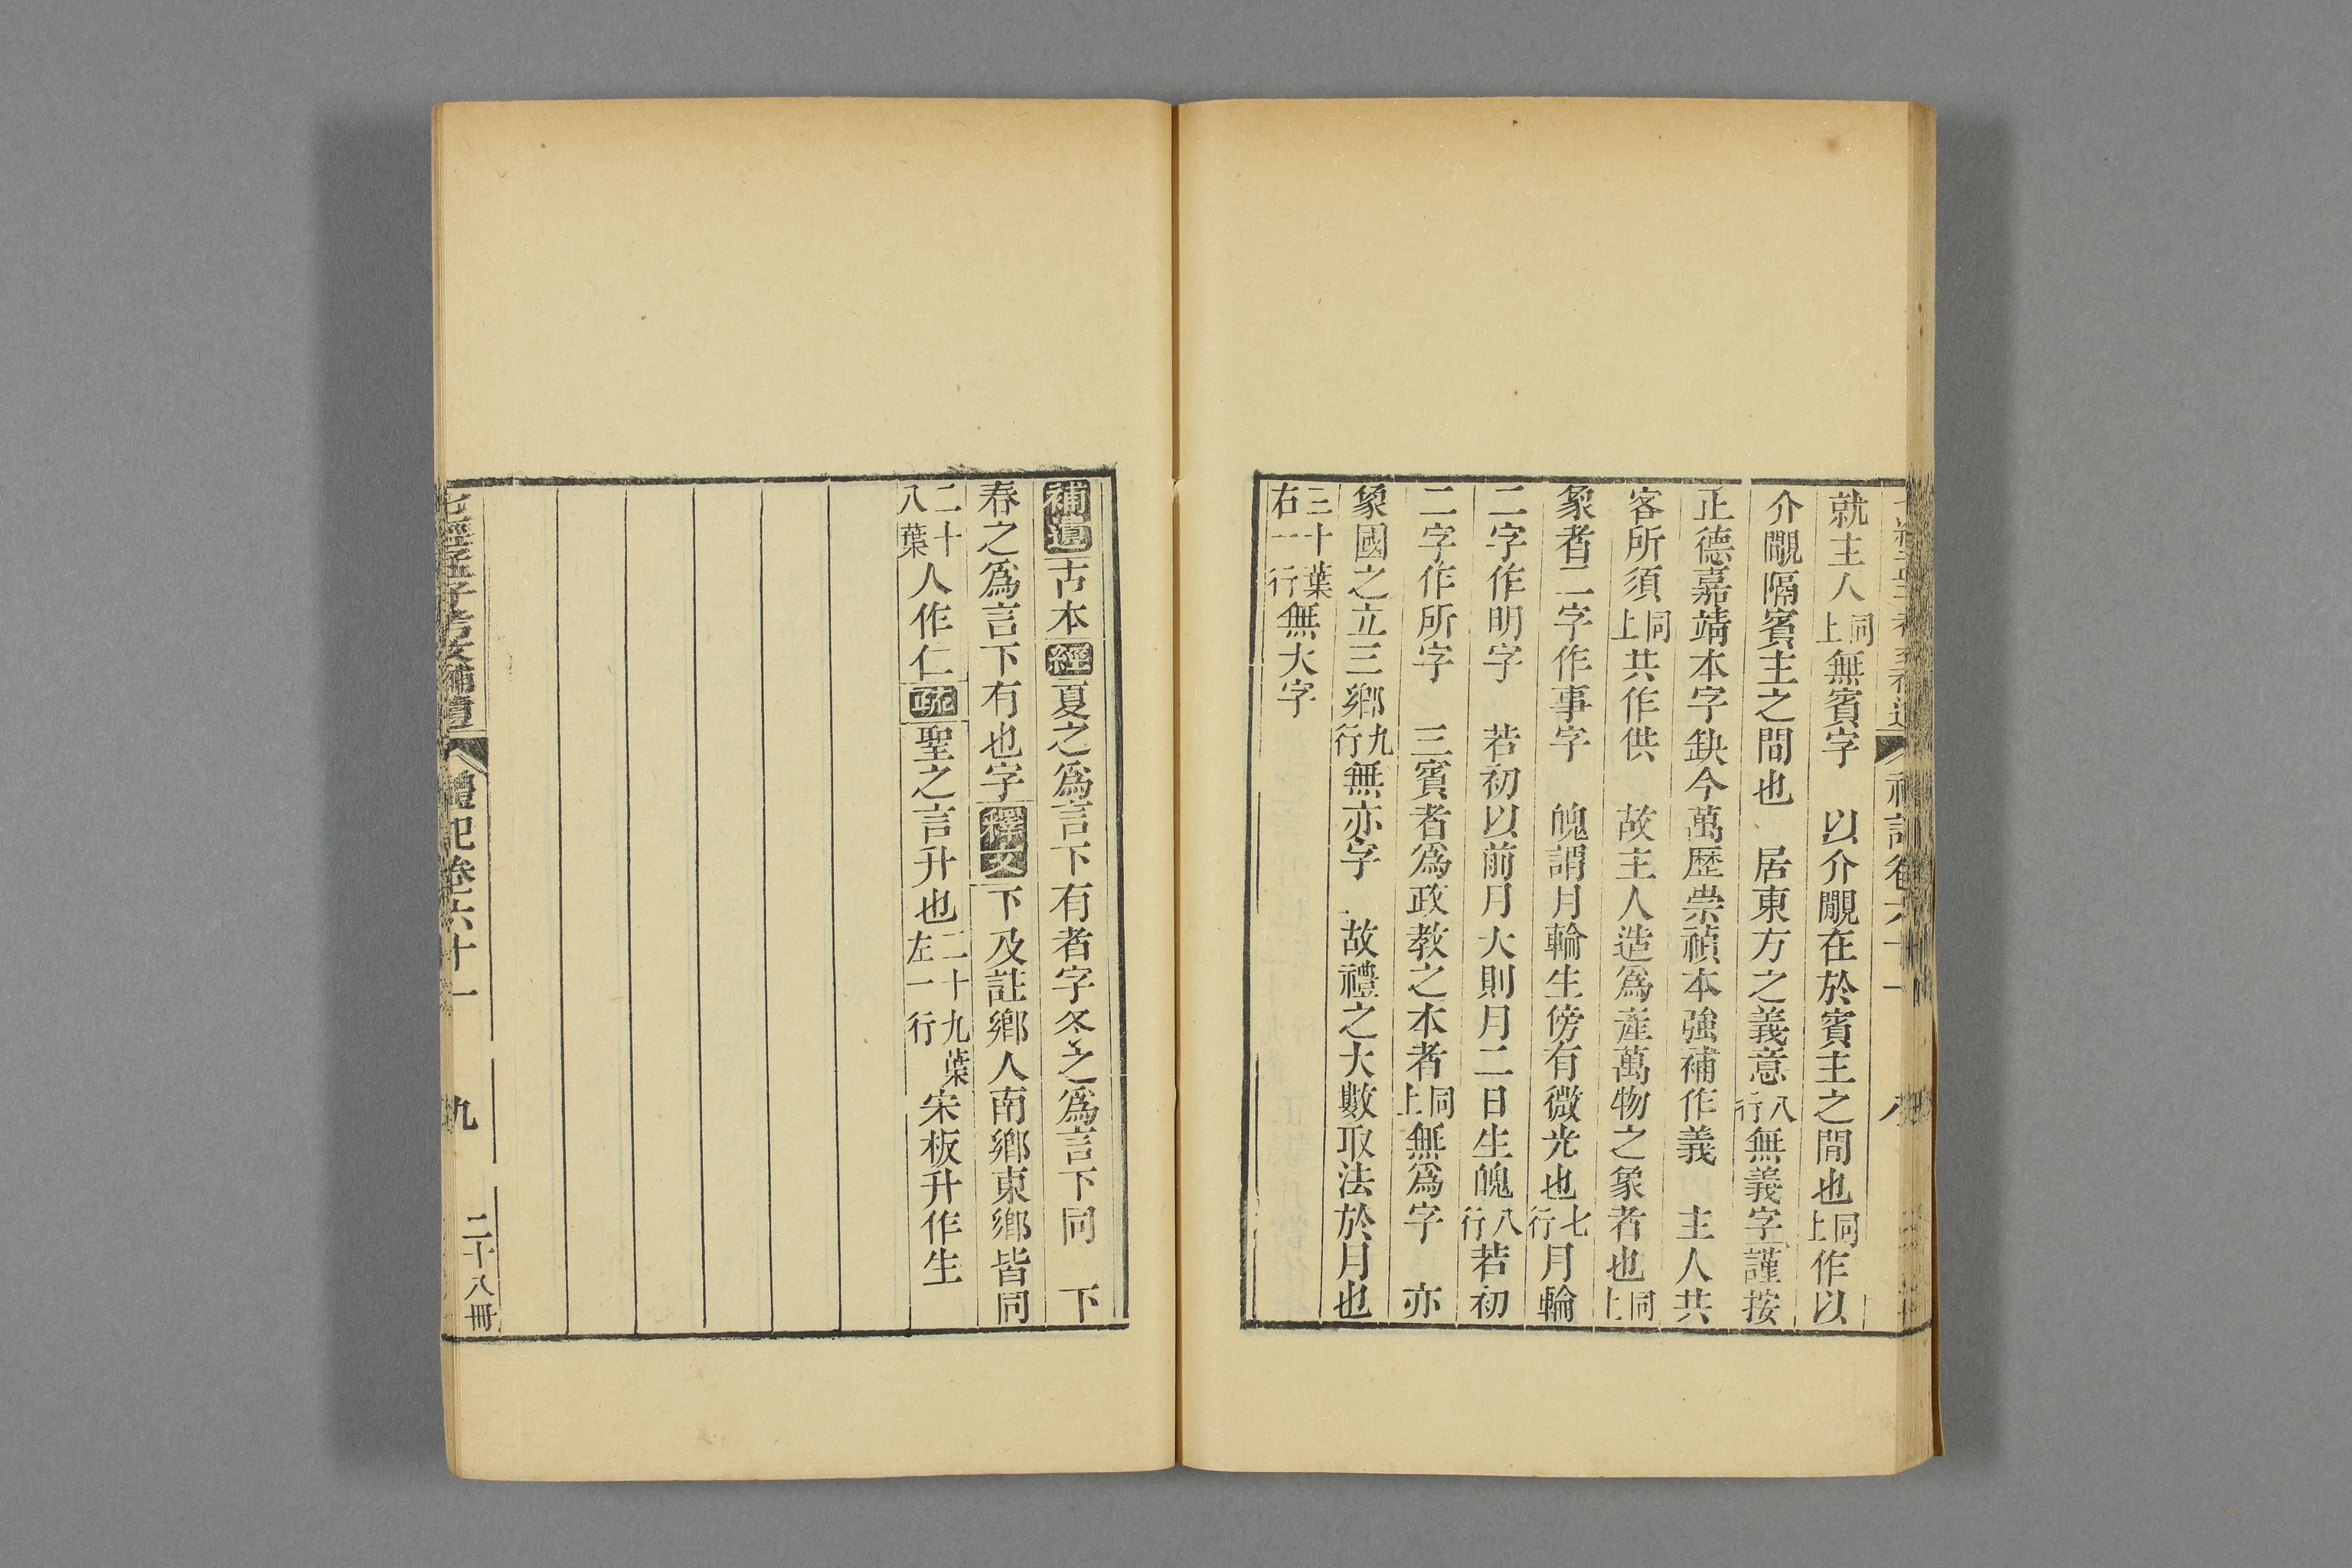 就主人同上無賓字　以介覸在於賓主之間也同上作以
介覸隔賓主之間也　居東方之義意八行無義字謹按
正德嘉靖本字缺今萬歷崇禎本強補作義　主人共
客所須同上共作供　故主人造爲產萬物之象者也同上
象者二字作事字　魄謂月輪生傍有微光也七行月輪
二字作明字　若初以前月大則月二日生魄八行若初
二字作所字　三賓者爲政教之本者同上無爲字　亦
象國之立三鄉九行無亦字　故禮之大數取法於月也
三十葉右一行無大字
補遺古本經夏之爲言下有者字冬之爲言下同　下
春之爲言下有也字釋文下及註鄉人南鄉東鄉皆同
二十八葉人作仁疏聖之言升也二十九葉左一行宋板升作生
七經孟子考文補遺　禮記卷六十一　九　二十八冊